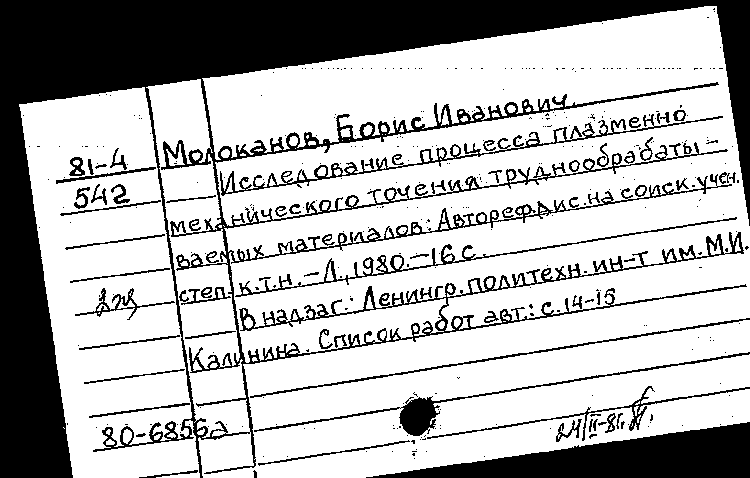 81-4 Молоканов, Борис Иванович.
542 Исследование процесса плазменно
механического точения труднообрабаты-
ваемых материалов: Автореф.дис.на соиск.учен.
степ. к.т.н. - Л., 1980. - 16 с.
В надзаг.: Ленингр. политехн. ин-т им. М.И.
Калинина. Список работ авт.: с. 14-15
80-6856а
24/II-81.